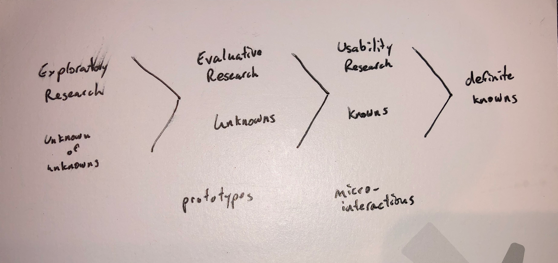 Exploratory
Research
Unknown
of
unknowns
Evaluative
Research
Unknowns
prototypes
Usability
Research
knowns
micro-
interactions
definite
knowns